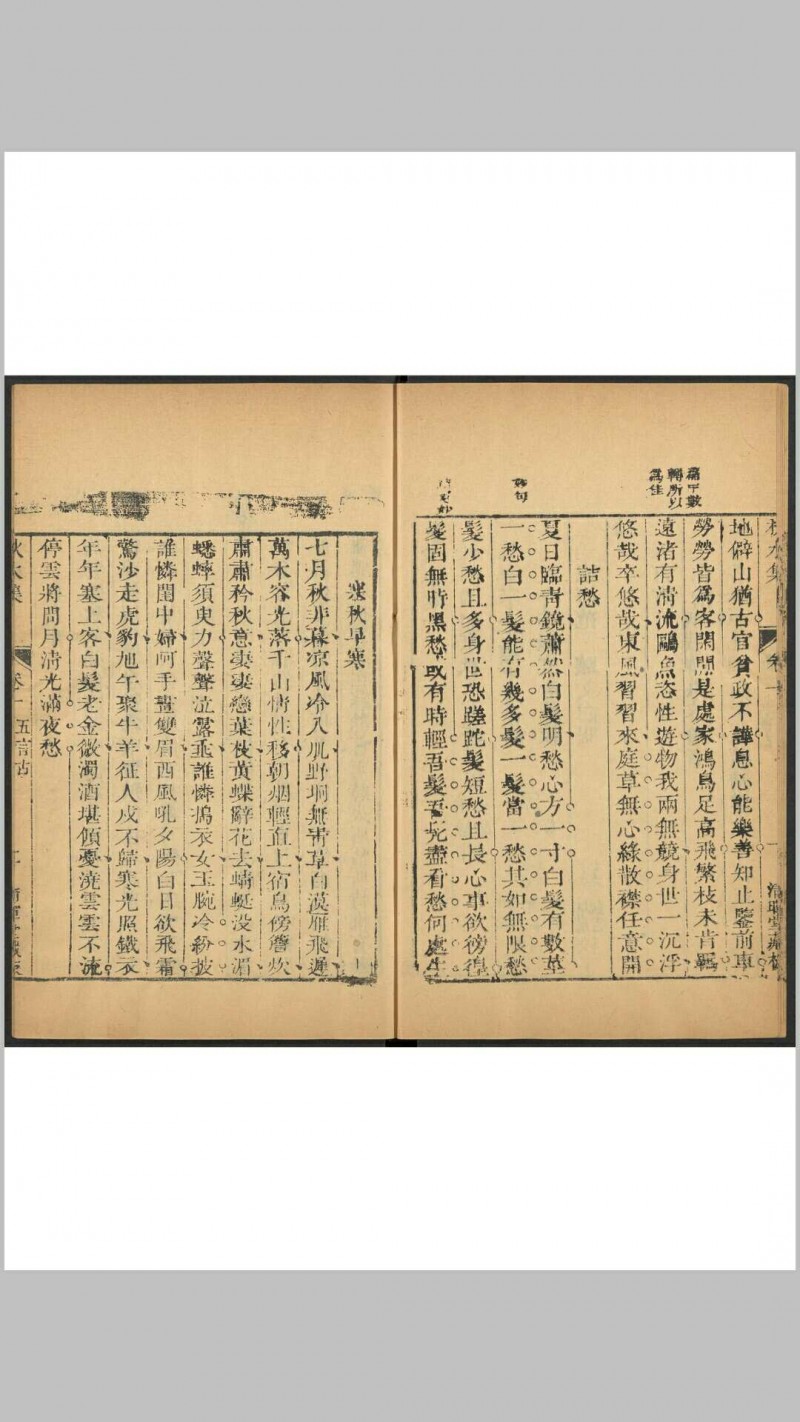 秋水集
卷一
一
地僻山猶古官貧政不譁息心能樂善知止鑒前車
勞勞皆為客閑閑是處家鴻鳥足高飛繁枝未肯羈
遠渚有清流鷗魚恣性遊物我兩無競身世一沉浮
悠哉卒悠哉東風習習來庭草無心綠散襟任意開
轉所以
為佳
詰愁
夏日臨青鏡蕭然白髮明愁心方一寸白髮有數莖
一愁白一髮能有幾多髮一髮當一愁其如無限愁
妙句
髮少愁且多身世恐蹉跎髮短愁且長心事欲徬徨
髮固無時黑愁或有時輕吾髮吾死盡看愁何處生
塞秋早寒
七月秋非暮涼風冷入肌野坰無青草白漠雁飛遲
萬木容光落千山情性移朝烟輕直上宿鳥傍簷炊
肅肅矜秋意妻妻戀葉枝黃蝶辭花去蜻蜓没水湄
蟋蟀須臾力聲聲泣露垂誰憐搗衣女玉腕冷紛披
誰憐閨中婦呵手畫雙眉西風吼夕陽白日欲飛霜
驚沙走虎豹旭午聚牛羊征人戍不歸寒光照鐵衣
年年塞上客白髮老金微濁酒堪傾憂澆雲雲不流
停雲將問月清光滿夜愁
秋水集
卷一 五言古